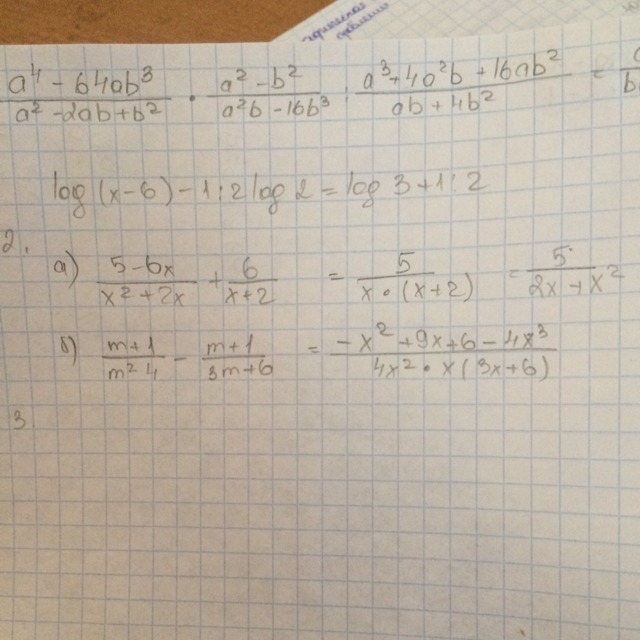 a⁴ - 64ab³ / a² - 2ab + b² · a² - b² / a²b - 16b³ : a³ + 4a²b + 16ab² / ab + 4b² =
log(x-6) - 1:2 log 2 = log 3 + 1:2
2.
а) 5-6x / x² + 2x + 6 / x+2 = 5 / x·(x+2) = 5 / 2x + x²
б) m+1 / m² 4 - m+1 / 3m+6 = -x² + 9x + 6 - 4x³ / 4x² · x(3x+6)
3